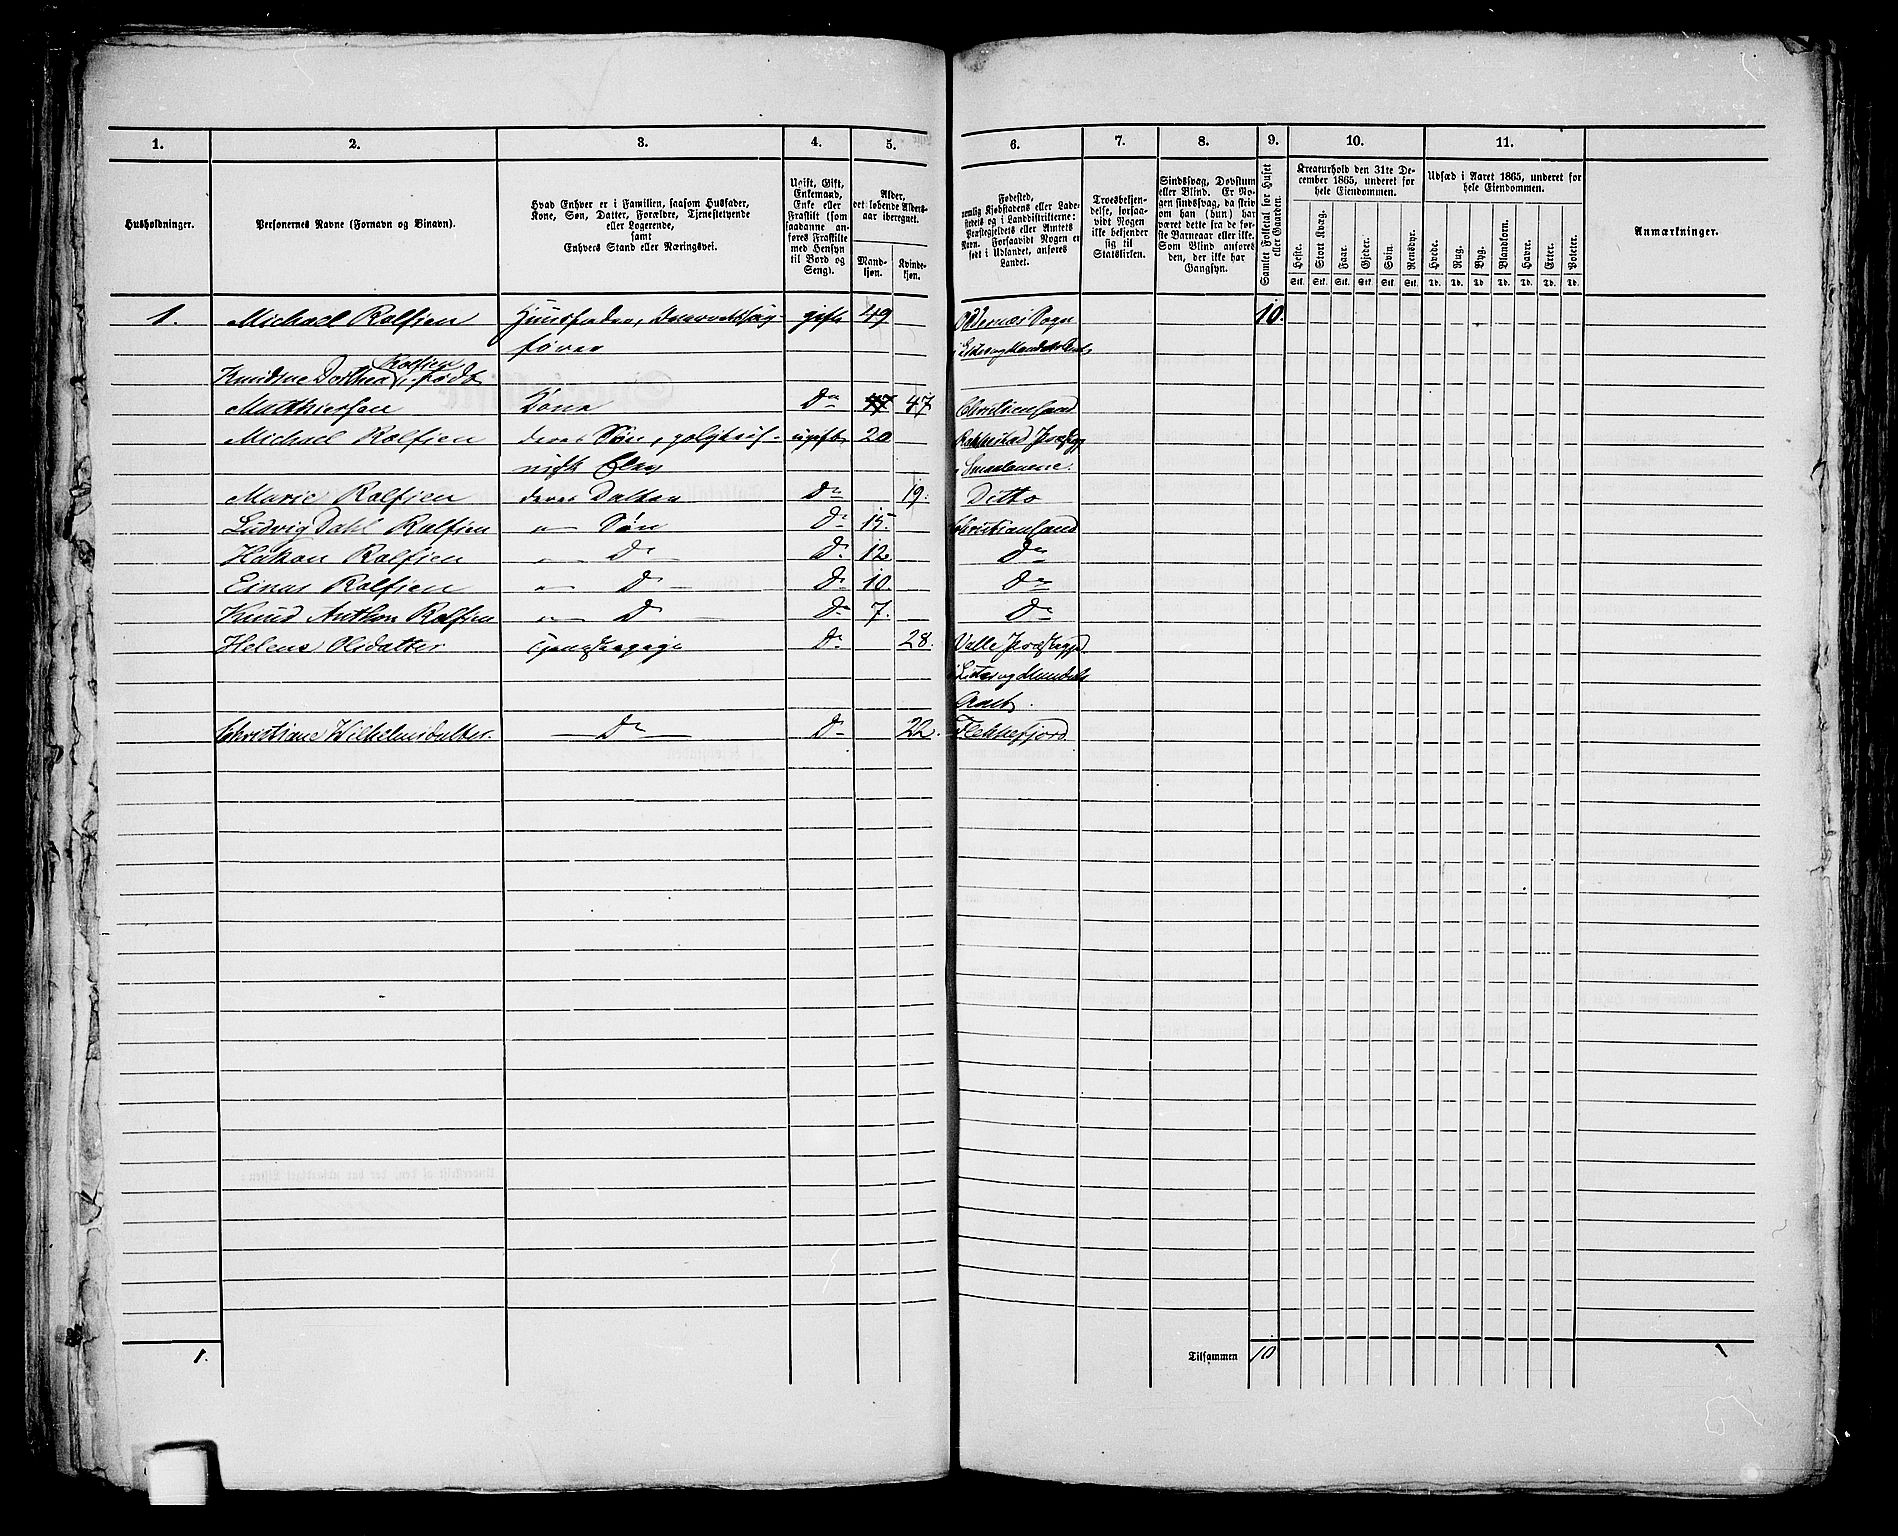 1. 2. 3. 4. 5. 6. 7. 8. 9. 10. 11.
Husholdninger.
Personernes Navne (Fornavn og Binavn).
Hvad Enhver er i Familien, saasom Husfader,
Kone, Søn, Datter, Forældre, Tjenestetyende
eller Logerende,
samt
Enhvers Stand eller Næringsvei.
Ugift, Gift,
Enkemand,
Enke eller
Fraskilt (som
saadanne an-
føres Fraskilte
med Hensyn
til Bord og
Seng).
Alder,
det løbende Alders-
aar iberegnet.
Mand-
kjøn.
Kvinde-
kjøn.
Fødested,
nemlig Kjøbstadens eller Lade-
stedets og i Landdistrikterne:
Præstegjeldets eller Amtets
Navn. Forsaavidt Nogen er
født i Udlandet, anføres
Landet.
Troesbekjen-
delse, forsaa-
vidt Nogen
ikke bekjender
sig til
Statskirken.
Sindssvag, Døvstum
eller Blind. Er No-
gen sindssvag, da skriv
om han (hun) har
været dette fra de før-
ste Barneaar eller ikke.
Som Blind anføres
den, der ikke har
Gangsyn.
Samlet Folketal for Huset
eller Gaarden.
Kreaturhold den 31te De-
cember 1865, underet for
hele Eiendommen.
Heste. Stort Kvæg. Faar. Gjeder. Svin. Rensdyr.
Stk. Stk. Stk. Stk. Stk. Stk.
Udsæd i Aaret 1865, underet for
hele Eiendommen.
Hvede. Rug. Byg. Blandkorn. Havre. Erter. Poteter.
Td. Td. Td. Td. Td. Td. Td.
Anmærkninger.
1. Michael Rolfsen Huusfader, gift 49 Oddernæs Sogn 10.
fører i Lister og Mandals Amt
Rolfsen
Dorthea, født
Matthiesen Kone Do 47 47 Christiansand
Michael Rolfsen deres Søn, ugift 20 Rakkestad Præstegj
Elev i Smaalenene.
Marie Rolfsen deres Datter Do 19. Ditto
Ludvig Dahl Rolfsen " Søn Do 15. Christiansand
Hakon Rolfsen " D Do 12. Do
Einar Rolfsen " D Do 10. Do
Knud Anthon Rolfsen " D Do 7. Do
Helene Olsdatter Tjenestepige Do 28. Valle Præstegjd
i Lister og Mandals
Amt.
Christiane Wilhelmsdatter. Do Do 22. Flekkefjord
1. Tilsammen 10 1